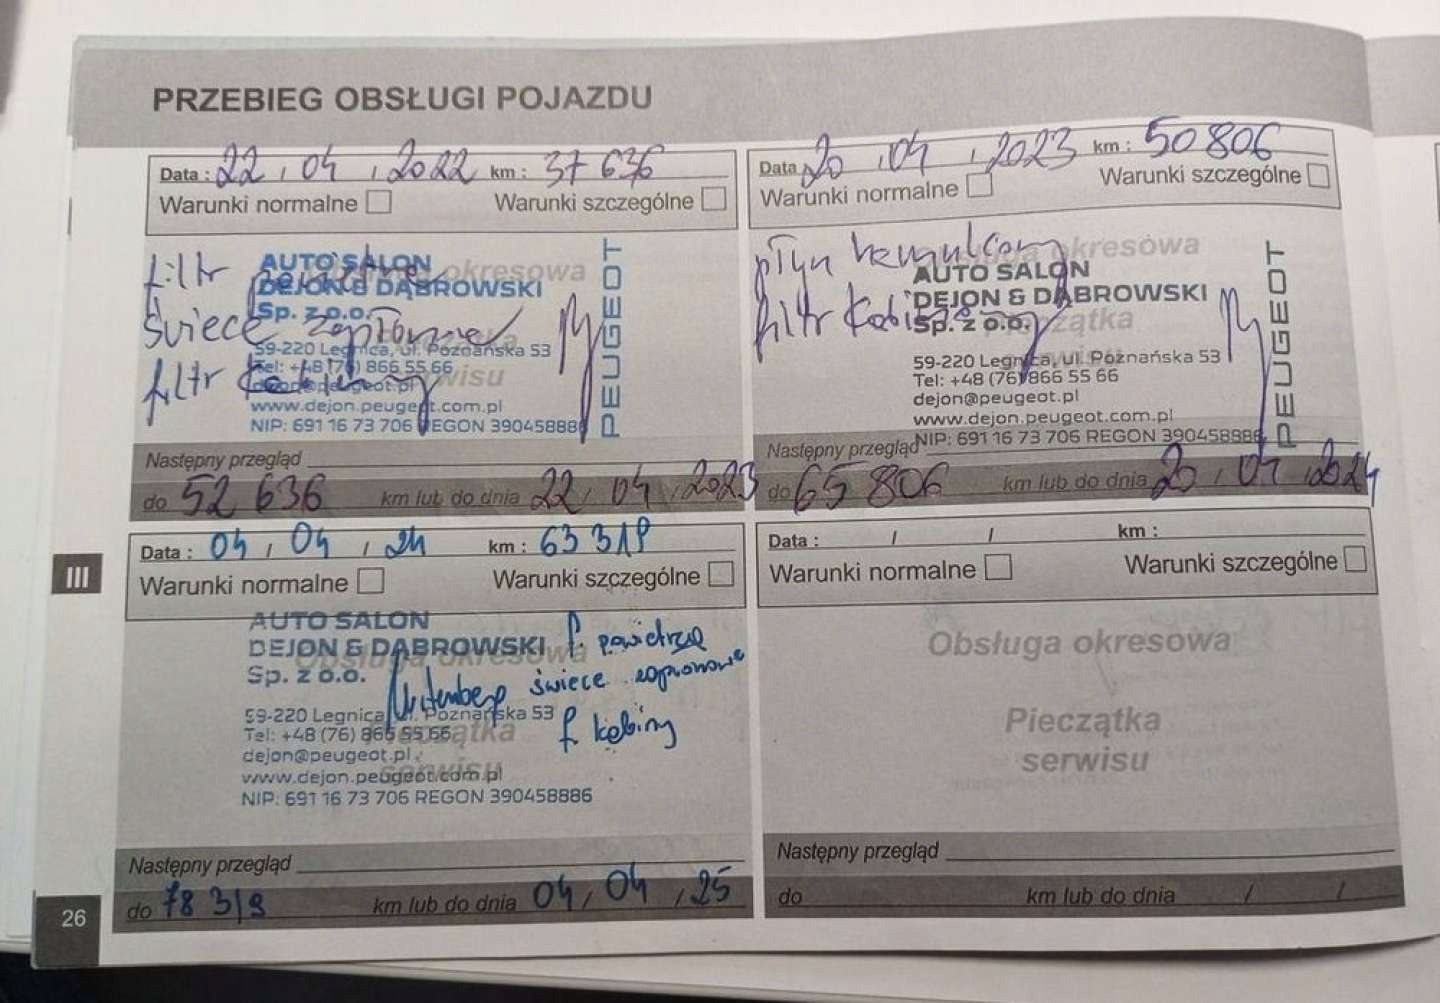 PRZEBIEG OBSŁUGI POJAZDU
Data : 22 / 04 / 2022 km : 37 636
Warunki normalne Warunki szczególne
Obsługa okresowa
AUTO SALON
DEJON & DĄBROWSKI
Sp. z o.o.
59-220 Legnica, ul. Poznańska 53
Tel: +48 (76) 866 55 66
dejon@peugeot.pl
www.dejon.peugeot.com.pl
NIP: 691 16 73 706 REGON 390458886
PEUGEOT
filtr powietrza
świece zapłonowe
filtr kabiny
Pieczątka
serwisu
Następny przegląd
do 52 636 km lub do dnia 22 / 04 / 2023
Data 20 / 04 / 2023 km : 50 806
Warunki normalne Warunki szczególne
Obsługa okresowa
płyn hamulcowy
filtr kabiny
AUTO SALON
DEJON & DĄBROWSKI
Sp. z o.o.
Pieczątka
serwisu
59-220 Legnica, ul. Poznańska 53
Tel: +48 (76) 866 55 66
dejon@peugeot.pl
www.dejon.peugeot.com.pl
NIP: 691 16 73 706 REGON 390458886
PEUGEOT
Następny przegląd
do 65 806 km lub do dnia 20 / 04 / 2024
III
Data : 04 / 04 / 24 km : 63 319
Warunki normalne Warunki szczególne
Obsługa okresowa
AUTO SALON
DEJON & DĄBROWSKI
Sp. z o.o.
59-220 Legnica, ul. Poznańska 53
Tel: +48 (76) 866 55 66
dejon@peugeot.pl
www.dejon.peugeot.com.pl
NIP: 691 16 73 706 REGON 390458886
f. powietrza
świece zapłonowe
f. kabiny
Pieczątka
serwisu
Następny przegląd
do 78 319 km lub do dnia 04 / 04 / 25
Data : / / km :
Warunki normalne Warunki szczególne
Obsługa okresowa
Pieczątka
serwisu
Następny przegląd
do km lub do dnia / /
26